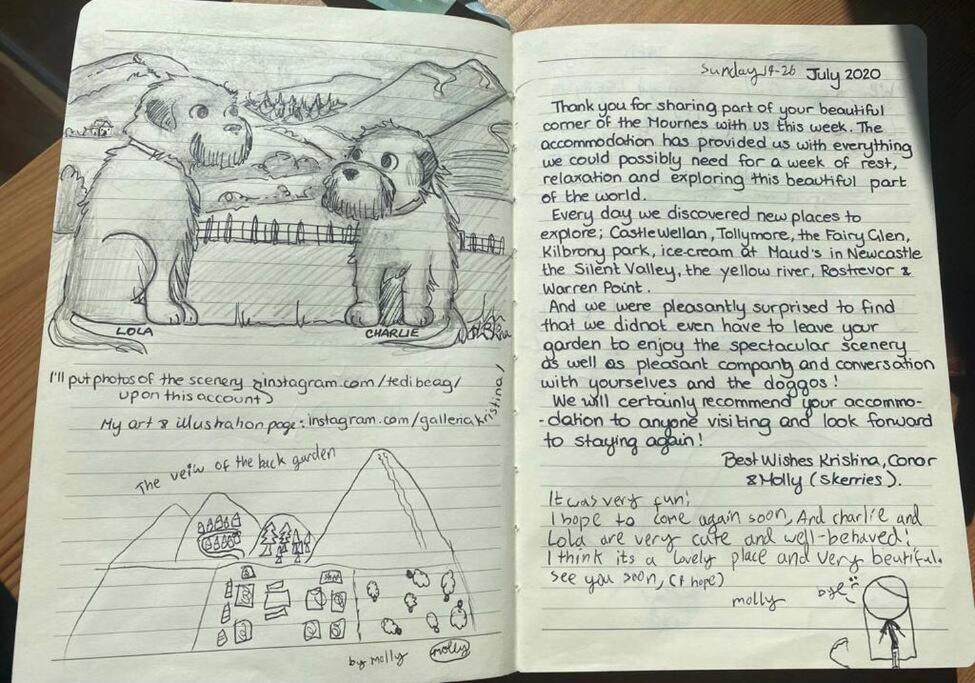 LOLA
CHARLIE
I'll put photos of the scenery instagram.com/tedibeag/
upon this account)
My art & illustration page: instagram.com/galleriakristina/
The veiw of the back garden
by molly
molly
Sunday 19-26 July 2020
Thank you for sharing part of your beautiful
corner of the Mournes with us this week. The
accommodation has provided us with everything
we could possibly need for a week of rest,
relaxation and exploring this beautiful part
of the world.
Every day we discovered new places to
explore; Castlewellan, Tollymore, the Fairy Glen,
Kilbrony park, ice-cream at Maud's in Newcastle
the Silent Valley, the yellow river, Rostrevor &
Warren Point.
And we were pleasantly surprised to find
that we didnot even have to leave your
garden to enjoy the spectacular scenery
as well as pleasant company and conversation
with yourselves and the doggos!
We will certainly recommend your accommo-
-dation to anyone visiting and look forward
to staying again!
Best Wishes Kristina, Conor
& Molly (Skerries).
It was very fun!
I hope to come again soon, And charlie and
Lola are very cute and well-behaved!
I think its a lovely place and very beutiful.
see you soon, (I hope)
molly
bye